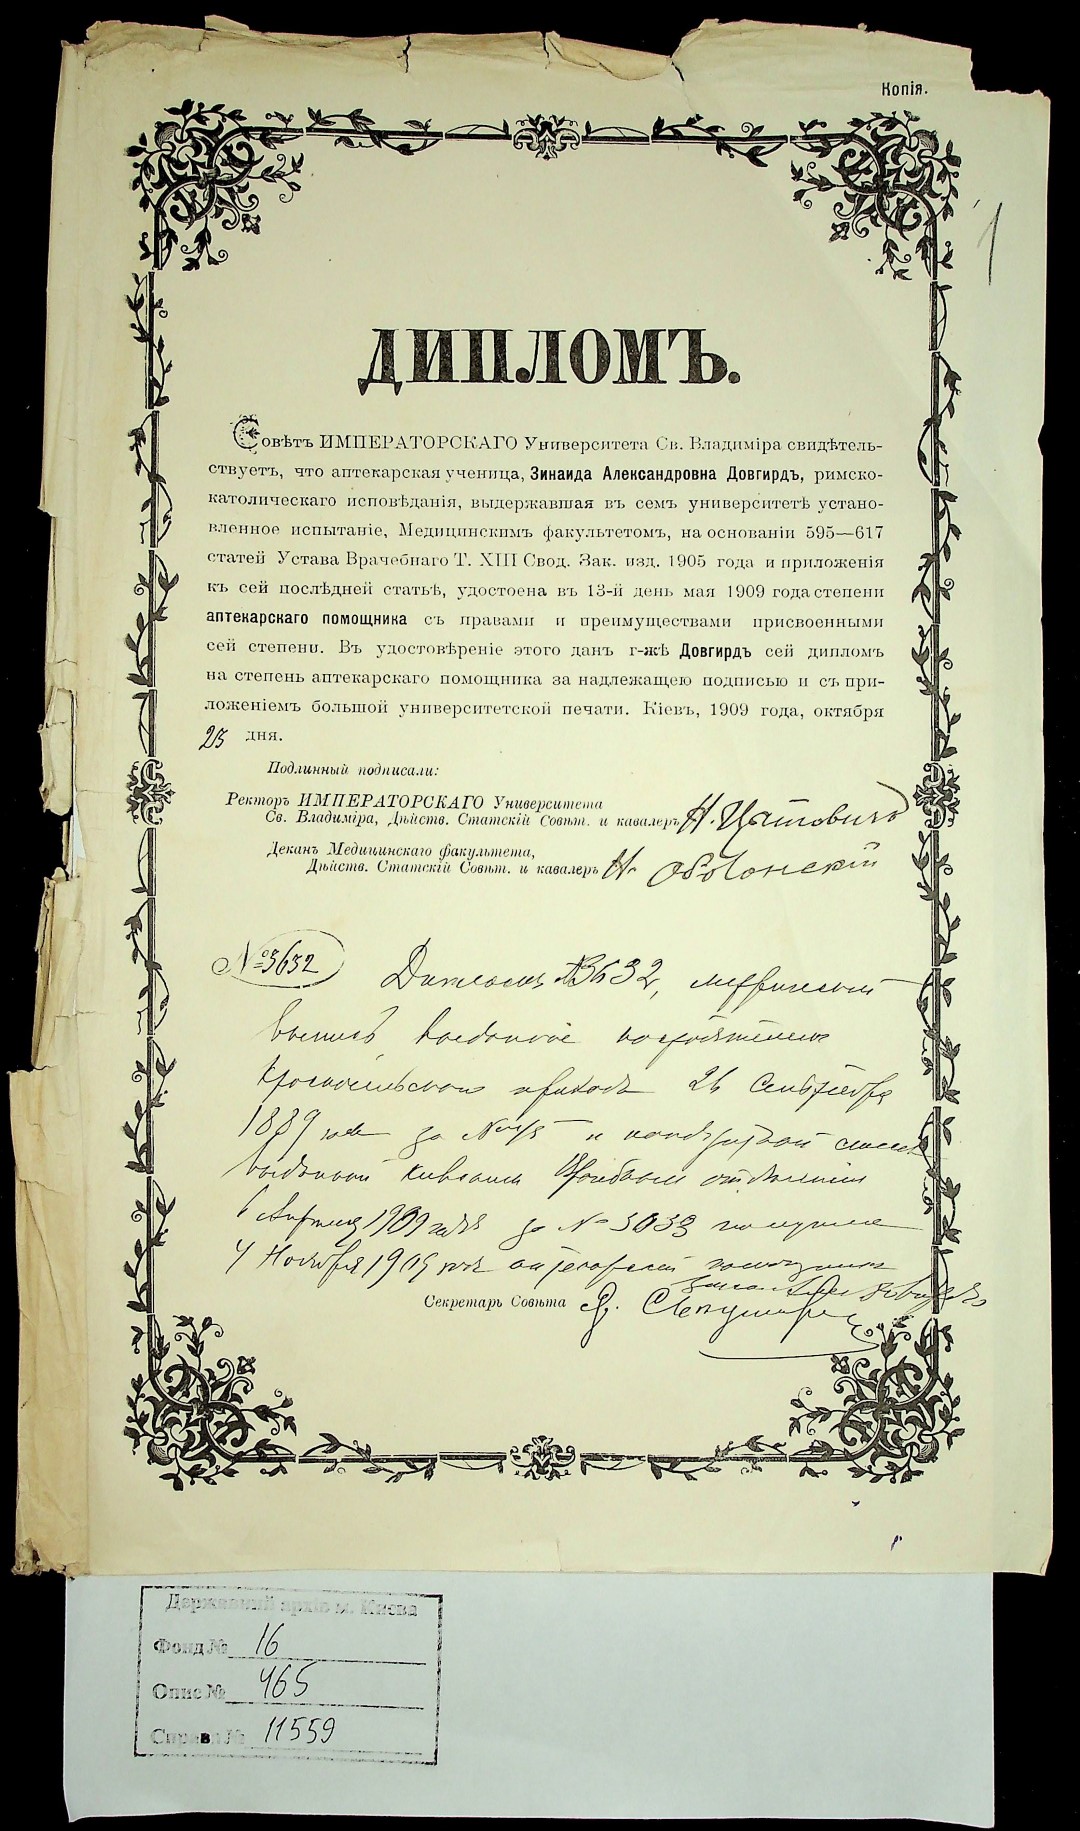 Копія.
1
ДИПЛОМЪ.
Совѣтъ ИМПЕРАТОРСКАГО Университета Св. Владиміра свидѣтель-
ствуетъ, что аптекарская ученица, Зинаида Александровна Довгирдъ, римско-
католическаго исповѣданія, выдержавшая въ семъ университетѣ устано-
вленное испытаніе, Медицинскимъ факультетомъ, на основаніи 595—617
статей Устава Врачебнаго Т. XIII Свод. Зак. изд. 1905 года и приложенія
къ сей послѣдней статьѣ, удостоена въ 13-й день мая 1909 года степени
аптекарскаго помощника съ правами и преимуществами присвоенными
сей степени. Въ удостовѣреніе этого данъ г-жѣ Довгирдъ сей дипломъ
на степень аптекарскаго помощника за надлежащею подписью и съ при-
ложеніемъ большой университетской печати. Кіевъ, 1909 года, октября
дня.
Подлинный подписали:
Ректоръ ИМПЕРАТОРСКАГО Университета
Св. Владиміра, Дѣйств. Статскій Совѣт. и кавалеръ Н. Цытовичъ
Деканъ Медицинскаго факультета,
Дѣйств. Статскій Совѣт. и кавалеръ Н. Оболонскій
№ 3632
Дипломъ № 3632, метрическую
выпись
приходъ 26 Сентября
1889 года за № и
6 Апрѣля 1909 года за № 3033 получила
4 Ноября 1909 года аптекарскій помощникъ
Довгирдъ
Секретарь Совѣта
Державний архів м. Києва
Фонд № 16
Опис № 465
Справа № 11559